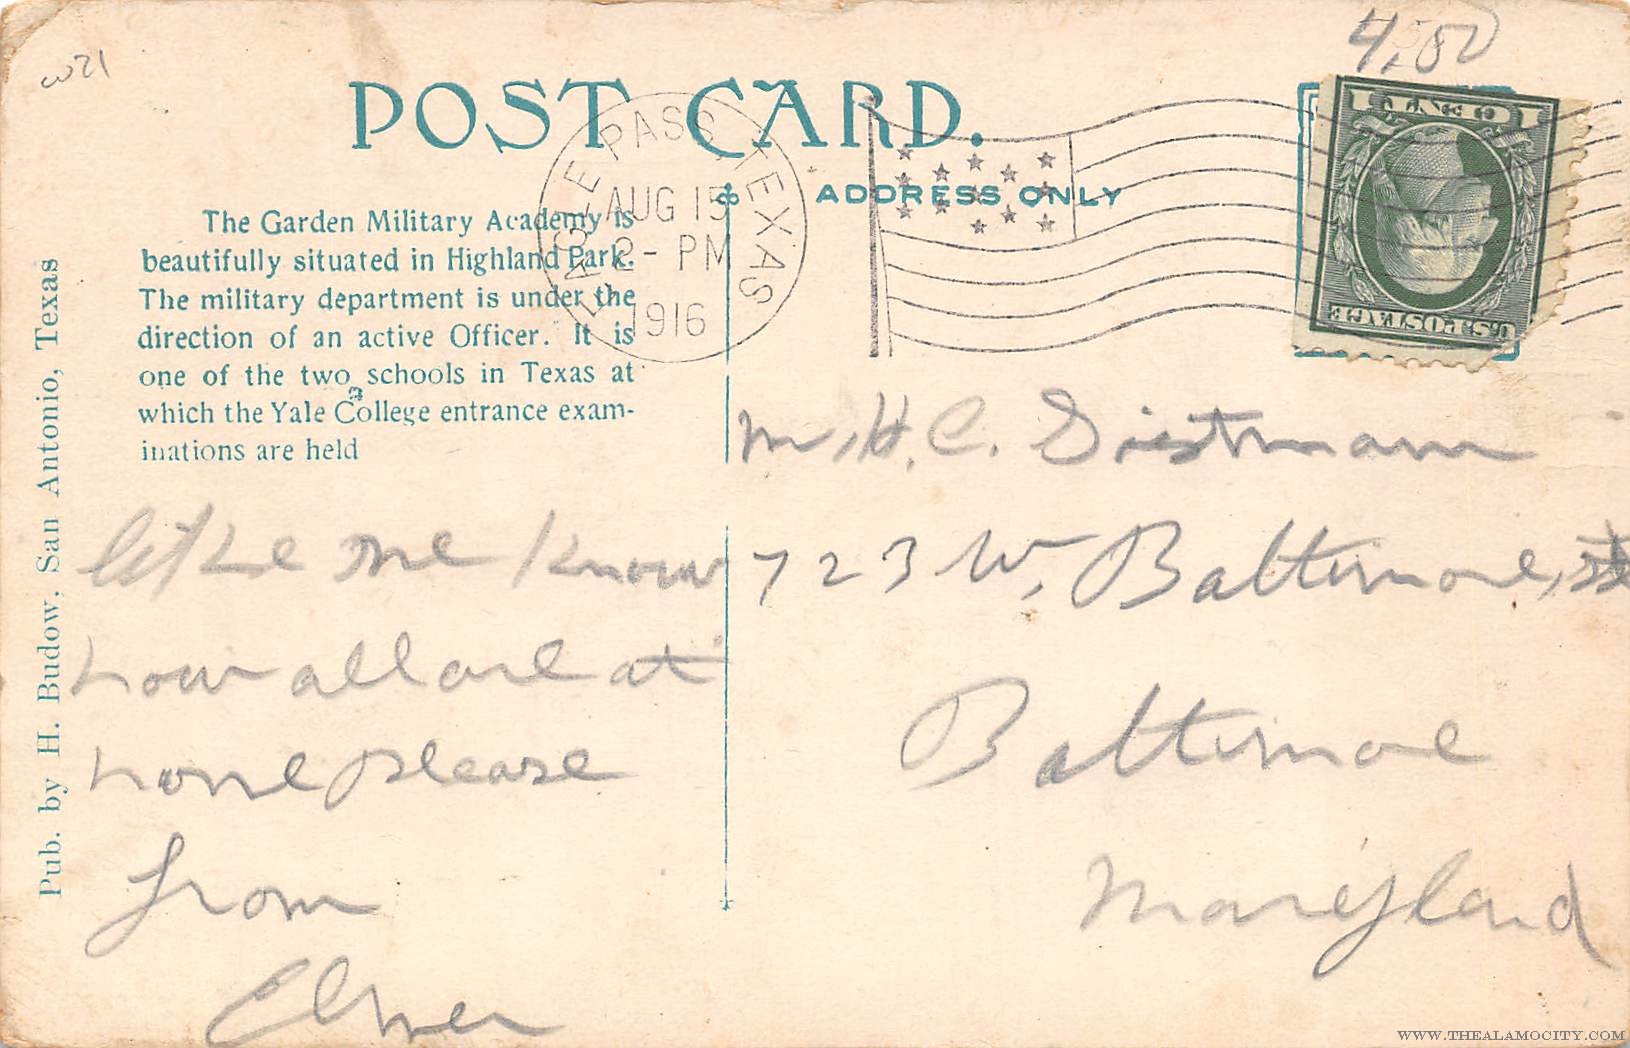 w21
4.50
POST CARD.
EAGLE PASS, TEXAS
AUG 15
2 - PM
1916
ADDRESS ONLY
1 CENT 1
U.S. POSTAGE
The Garden Military Academy is
beautifully situated in Highland Park.
The military department is under the
direction of an active Officer. It is
one of the two schools in Texas at
which the Yale College entrance exam-
inations are held
Pub. by H. Budow, San Antonio, Texas
me know
how all are at
home please
from
Elmer
Mr. H. C.
723 W. Baltimore, St
Baltimore
Maryland
WWW.THEALAMOCITY.COM